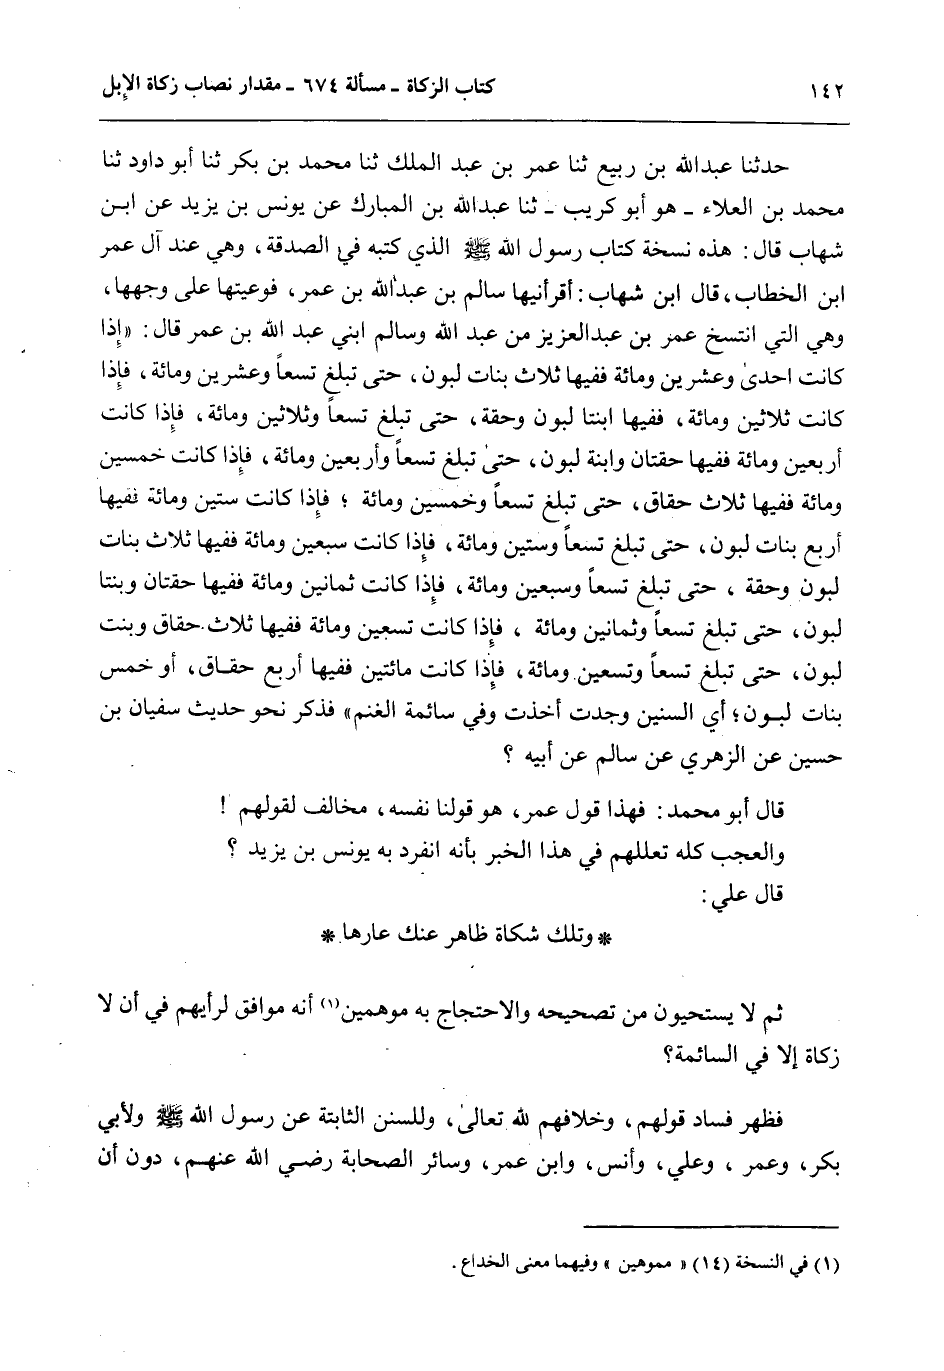 ١٤٢ كتاب الزكاة ـ مسألة ٦٧٤ ـ مقدار نصاب زكاة الإبل
حدثنا عبدالله بن ربيع ثنا عمر بن عبد الملك ثنا محمد بن بكر ثنا أبو داود ثنا
محمد بن العلاء ـ هو أبو كريب ـ ثنا عبدالله بن المبارك عن يونس بن يزيد عن ابن
شهاب قال: هذه نسخة كتاب رسول الله ﷺ الذي كتبه في الصدقة، وهي عند آل عمر
ابن الخطاب، قال ابن شهاب: أقرأنيها سالم بن عبدالله بن عمر، فوعيتها على وجهها،
وهي التي انتسخ عمر بن عبدالعزيز من عبد الله وسالم ابني عبد الله بن عمر قال: «إذا
كانت احدى وعشرين ومائة ففيها ثلاث بنات لبون، حتى تبلغ تسعاً وعشرين ومائة، فإذا
كانت ثلاثين ومائة، ففيها ابنتا لبون وحقة، حتى تبلغ تسعاً وثلاثين ومائة، فإذا كانت
أربعين ومائة ففيها حقتان وابنة لبون، حتى تبلغ تسعاً وأربعين ومائة، فإذا كانت خمسين
ومائة ففيها ثلاث حقاق، حتى تبلغ تسعاً وخمسين ومائة ؛ فإذا كانت ستين ومائة ففيها
أربع بنات لبون، حتى تبلغ تسعاً وستين ومائة، فإذا كانت سبعين ومائة ففيها ثلاث بنات
لبون وحقة ، حتى تبلغ تسعاً وسبعين ومائة، فإذا كانت ثمانين ومائة ففيها حقتان وبنتا
لبون، حتى تبلغ تسعاً وثمانين ومائة ، فإذا كانت تسعين ومائة ففيها ثلاث حقاق وبنت
لبون، حتى تبلغ تسعاً وتسعين ومائة، فإذا كانت مائتين ففيها أربع حقـاق، أو خمس
بنات لبـون؛ أي السنين وجدت أخذت وفي سائمة الغنم» فذكر نحو حديث سفيان بن
حسين عن الزهري عن سالم عن أبيه ؟
قال أبو محمد: فهذا قول عمر، هو قولنا نفسه، مخالف لقولهم !
والعجب كله تعللهم في هذا الخبر بأنه انفرد به يونس بن يزيد ؟
قال علي:
* وتلك شكاة ظاهر عنك عارها *
ثم لا يستحيون من تصحيحه والاحتجاج به موهمين(١) أنه موافق لرأيهم في أن لا
زكاة إلا في السائمة؟
فظهر فساد قولهم، وخلافهم لله تعالى، وللسنن الثابتة عن رسول الله ﷺ ولأبي
بكر، وعمر ، وعلي، وأنس، وابن عمر، وسائر الصحابة رضي الله عنهـم، دون أن
(١) في النسخة (١٤) « مموهين » وفيهما معنى الخداع.